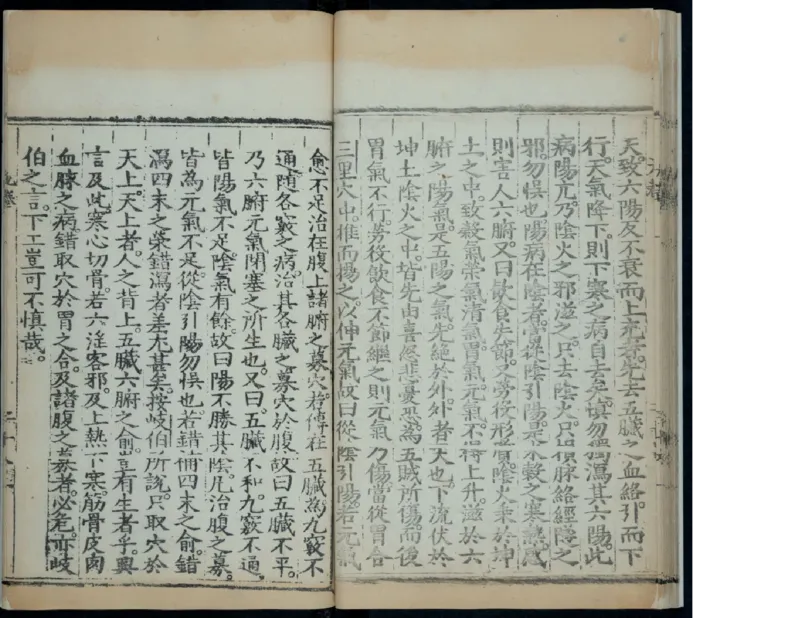 天致六陽反不衰而上充者先去五臟之血絡引而下
行天氣降下則下寒之病自去矣慎勿獨瀉其六陽此
病陽亢乃陰火之邪滋之只去陰火只損脉絡經隧之
邪勿悮也陽病在陰者當從陰引陽是水穀之寒熱感
則害人六腑又曰飲食失節又勞役形質陰火乗於坤
土之中致穀氣榮氣清氣胃氣元氣不得上升滋於六
腑之陽氣是五陽之氣先絶於外外者天也下流伏於
坤土陰火之中皆先由喜怒悲憂恐為五賊所傷而後
胃氣不行勞役飲食不節繼之則元氣乃傷當從胃合
三里穴中推而揚之以伸元氣故曰從陰引陽若元氣
愈不足治在腹上諸腑之募穴若傳在五臟為九竅不
通隨各竅之病治其各臟之募穴於腹故曰五臟不平
乃六腑元氣閉塞之所生也又曰五臟不和九竅不通
皆陽氣不足陰氣有餘故曰陽不勝其陰凡治腹之募
皆為元氣不足從陰引陽勿悮也若錯補四末之俞錯
瀉四末之榮錯瀉者差尤甚矣按岐伯所說只取穴於
天上天上者人之背上五臟六腑之俞豈有生者乎興
言及此寒心切骨若六淫客邪及上熱下寒筋骨皮肉
血脉之病錯取穴於胃之合及諸腹之募者必危亦岐
伯之言下工豈可不慎哉